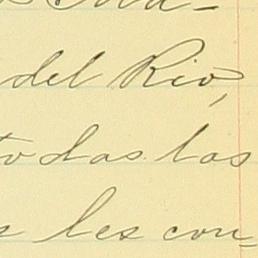 del Rio,
todas las
les con-